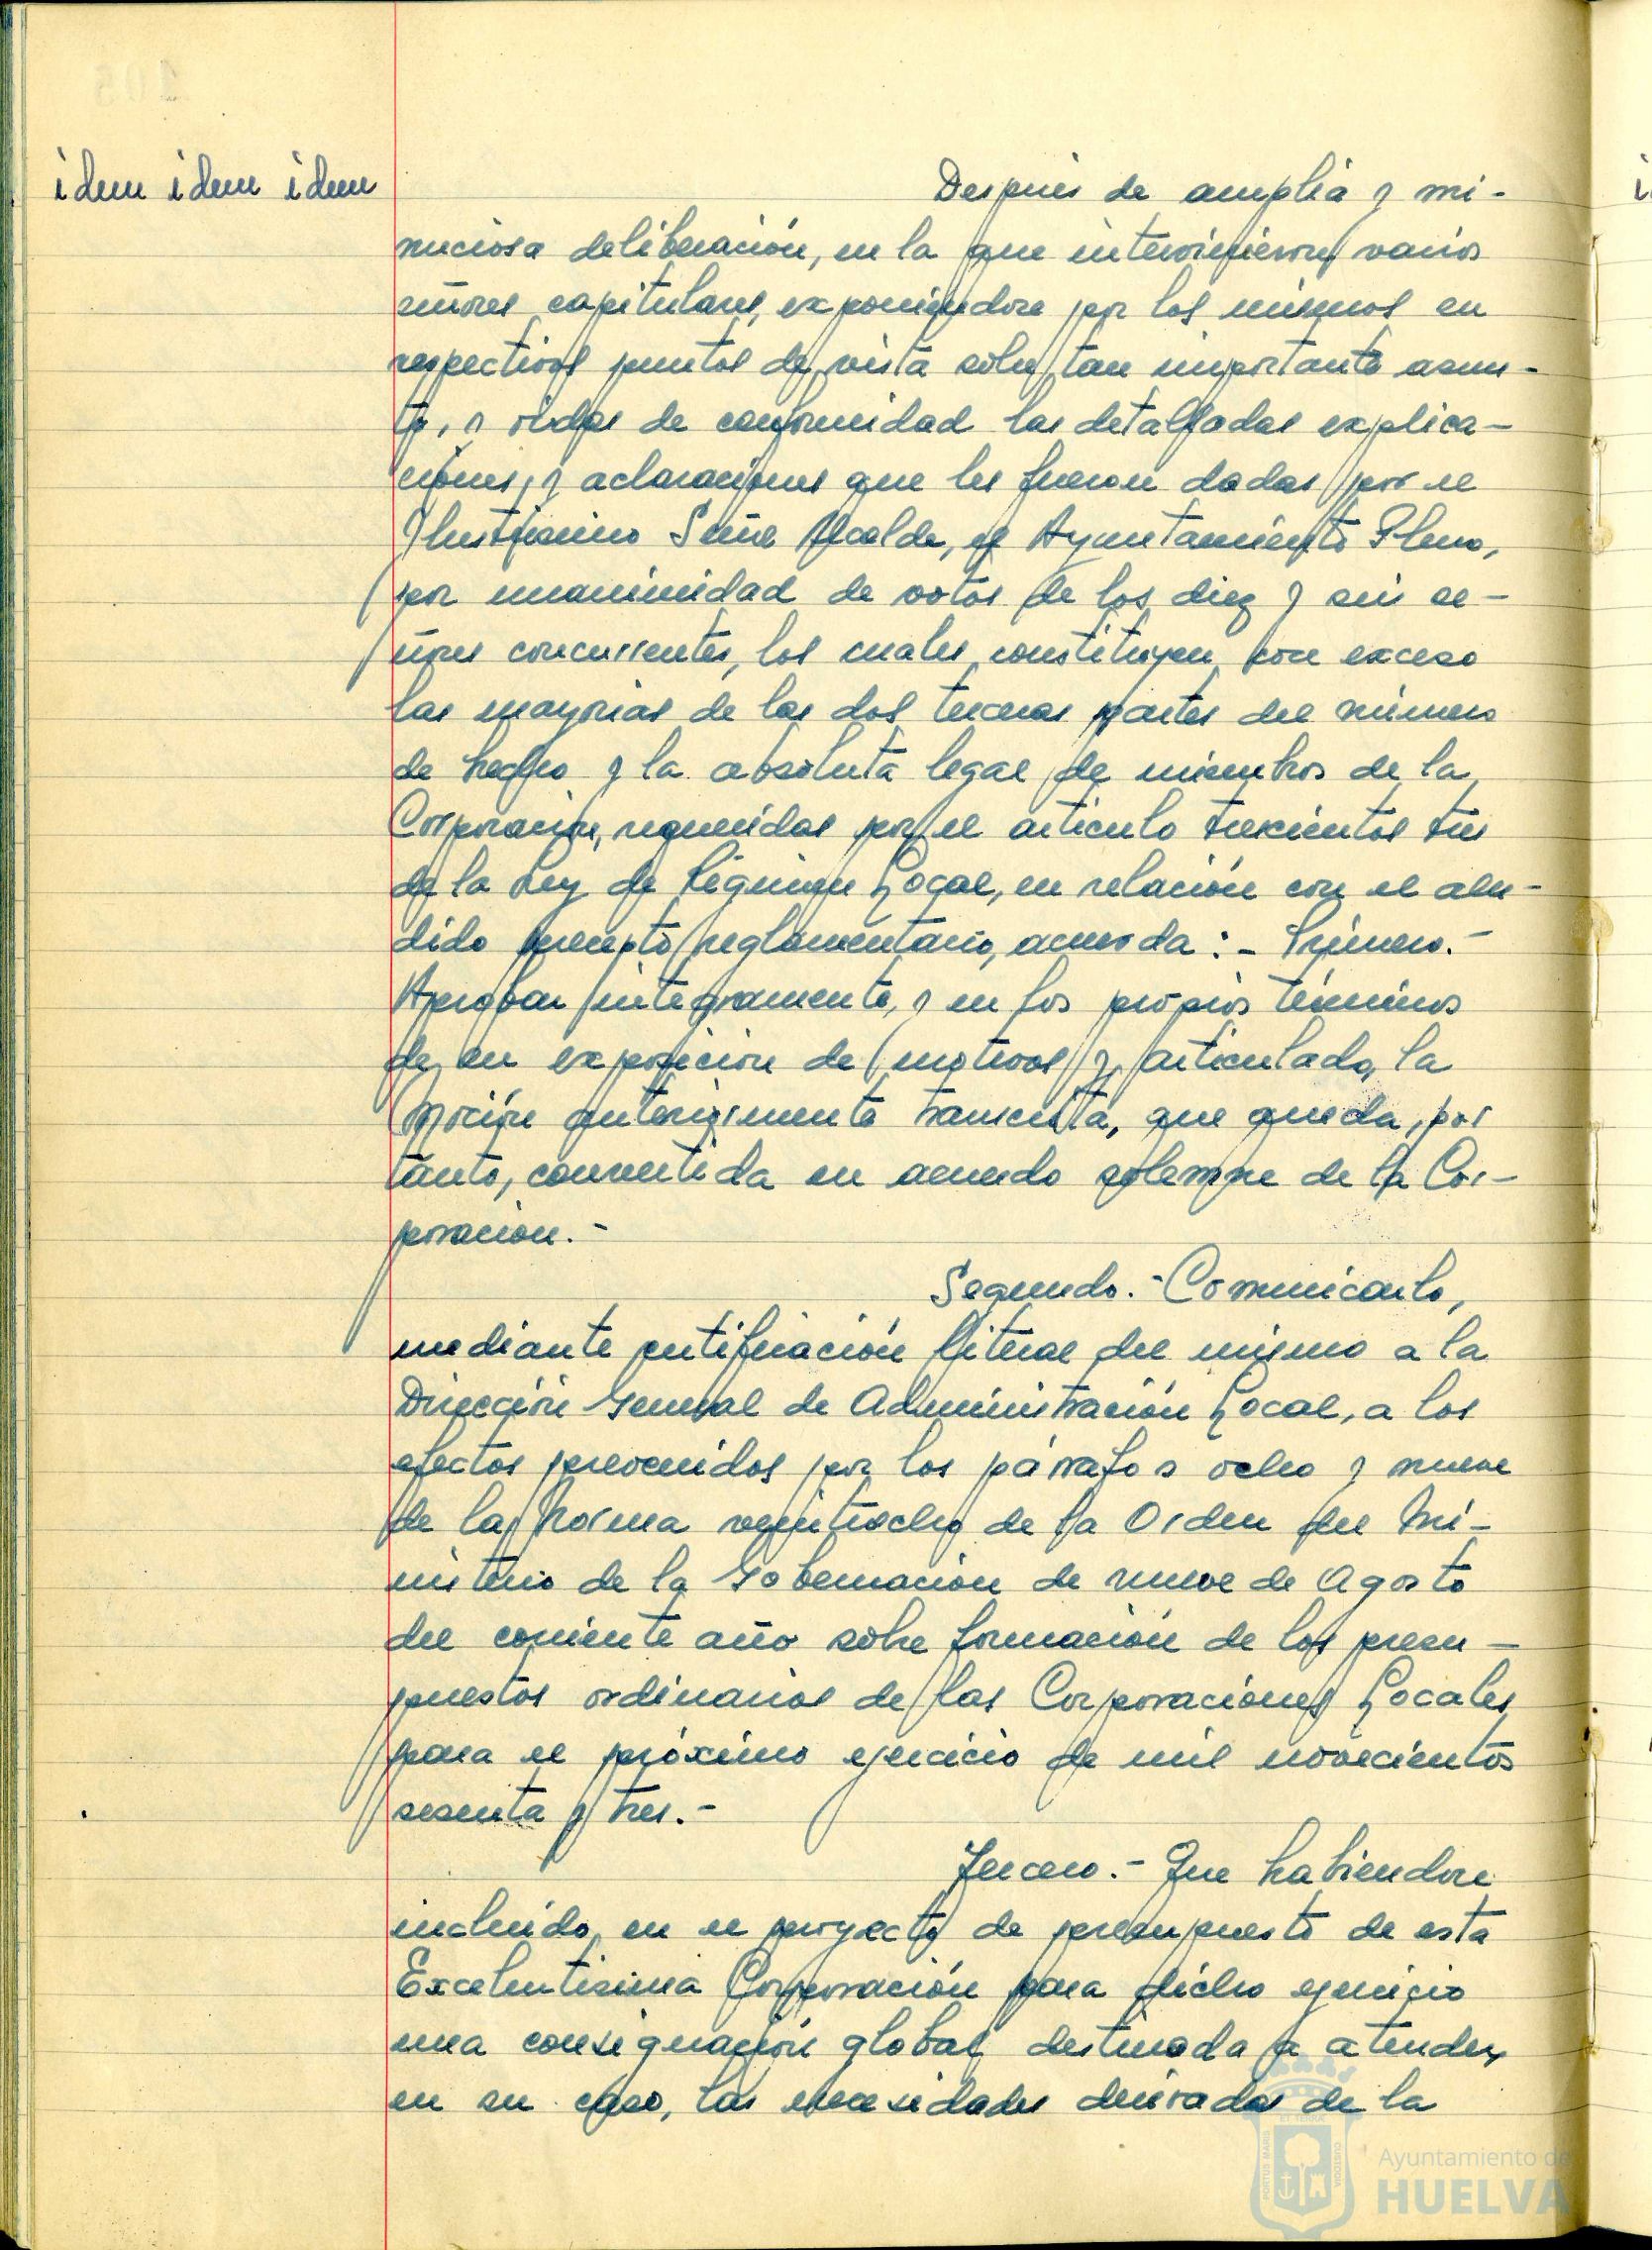 idem idem idem
Después de amplia y mi-
nuciosa deliberación, en la que intervinieron varios
señores capitulares, exponiéndose por los mismos sus
respectivos puntos de vista sobre tan importante asun-
to, y oídas de conformidad las detalladas explica-
ciones, y aclaraciones que les fueron dadas por el
Ilustrísimo Señor Alcalde, el Ayuntamiento Pleno,
por unanimidad de votos de los diez y seis se-
ñores concurrentes, los cuales constituyen con exceso
las mayorías de las dos terceras partes del número
de hecho y la absoluta legal de miembros de la
Corporación, requeridas por el artículo trescientos tres
de la Ley de Régimen Local, en relación con el alu-
dido precepto reglamentario, acuerda: - Primero.-
Aprobar íntegramente, y en los propios términos
de su exposición de motivos y articulado, la
moción anteriormente transcrita, que queda, por
tanto, convertida en acuerdo solemne de la Cor-
poración.-
Segundo.- Comunicarlo,
mediante certificación literal del mismo a la
Dirección General de Administración Local, a los
efectos prevenidos por los párrafos ocho y nueve
de la Norma veintiocho de la Orden del Mi-
nisterio de la Gobernación de nueve de Agosto
del corriente año sobre formación de los presu-
puestos ordinarios de las Corporaciones Locales
para el próximo ejercicio de mil novecientos
sesenta y tres.-
Tercero.- Que habiéndose
incluído en el proyecto de presupuesto de esta
Excelentísima Corporación para dicho ejercicio
una consignación global destinada a atender,
en su caso, las necesidades derivadas de la
Ayuntamiento de
HUELVA